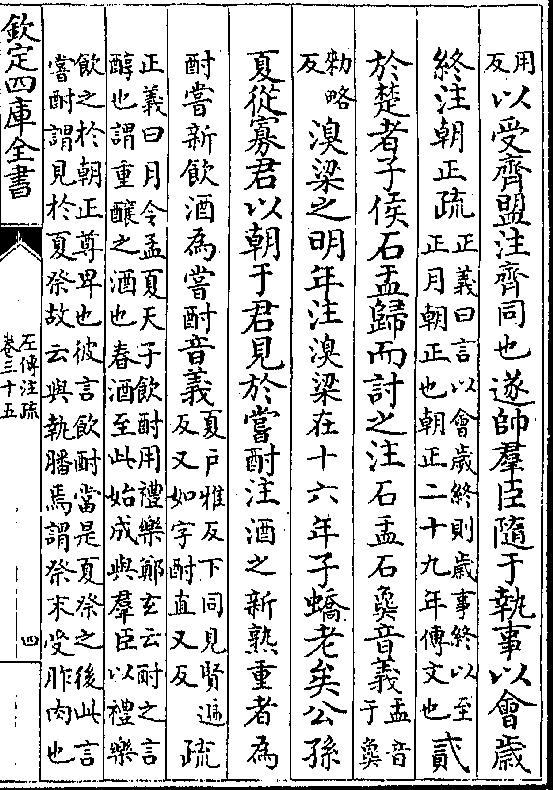 用
反
以受齊盟注齊同也遂帥羣臣隨于執事以會歲
終注朝正疏
正義曰言以會歲終則歲事終以至
正月朝正也朝正二十九年傳文也
貳
於楚者子侯石盂歸而討之注石盂石㚟音義
盂音
于㚟
勑略
反
溴梁之明年注溴梁在十六年子蟜老矣公孫
夏從寡君以朝于君見於嘗酎注酒之新熟重者為
酎嘗新飲酒為嘗酎音義
夏戶雅反下同見賢遍
反又如字酎直又反
疏
正義曰月令孟夏天子飲酎用禮樂鄭玄云酎之言
醇也謂重釀之酒也春酒至此始成與羣臣以禮樂
飲之於朝正尊卑也彼言飲酎當是夏祭之後此言
嘗酎謂見於夏祭故云與執膰焉謂祭末受胙肉也
欽定四庫全書
左傳注疏
卷三十五
四